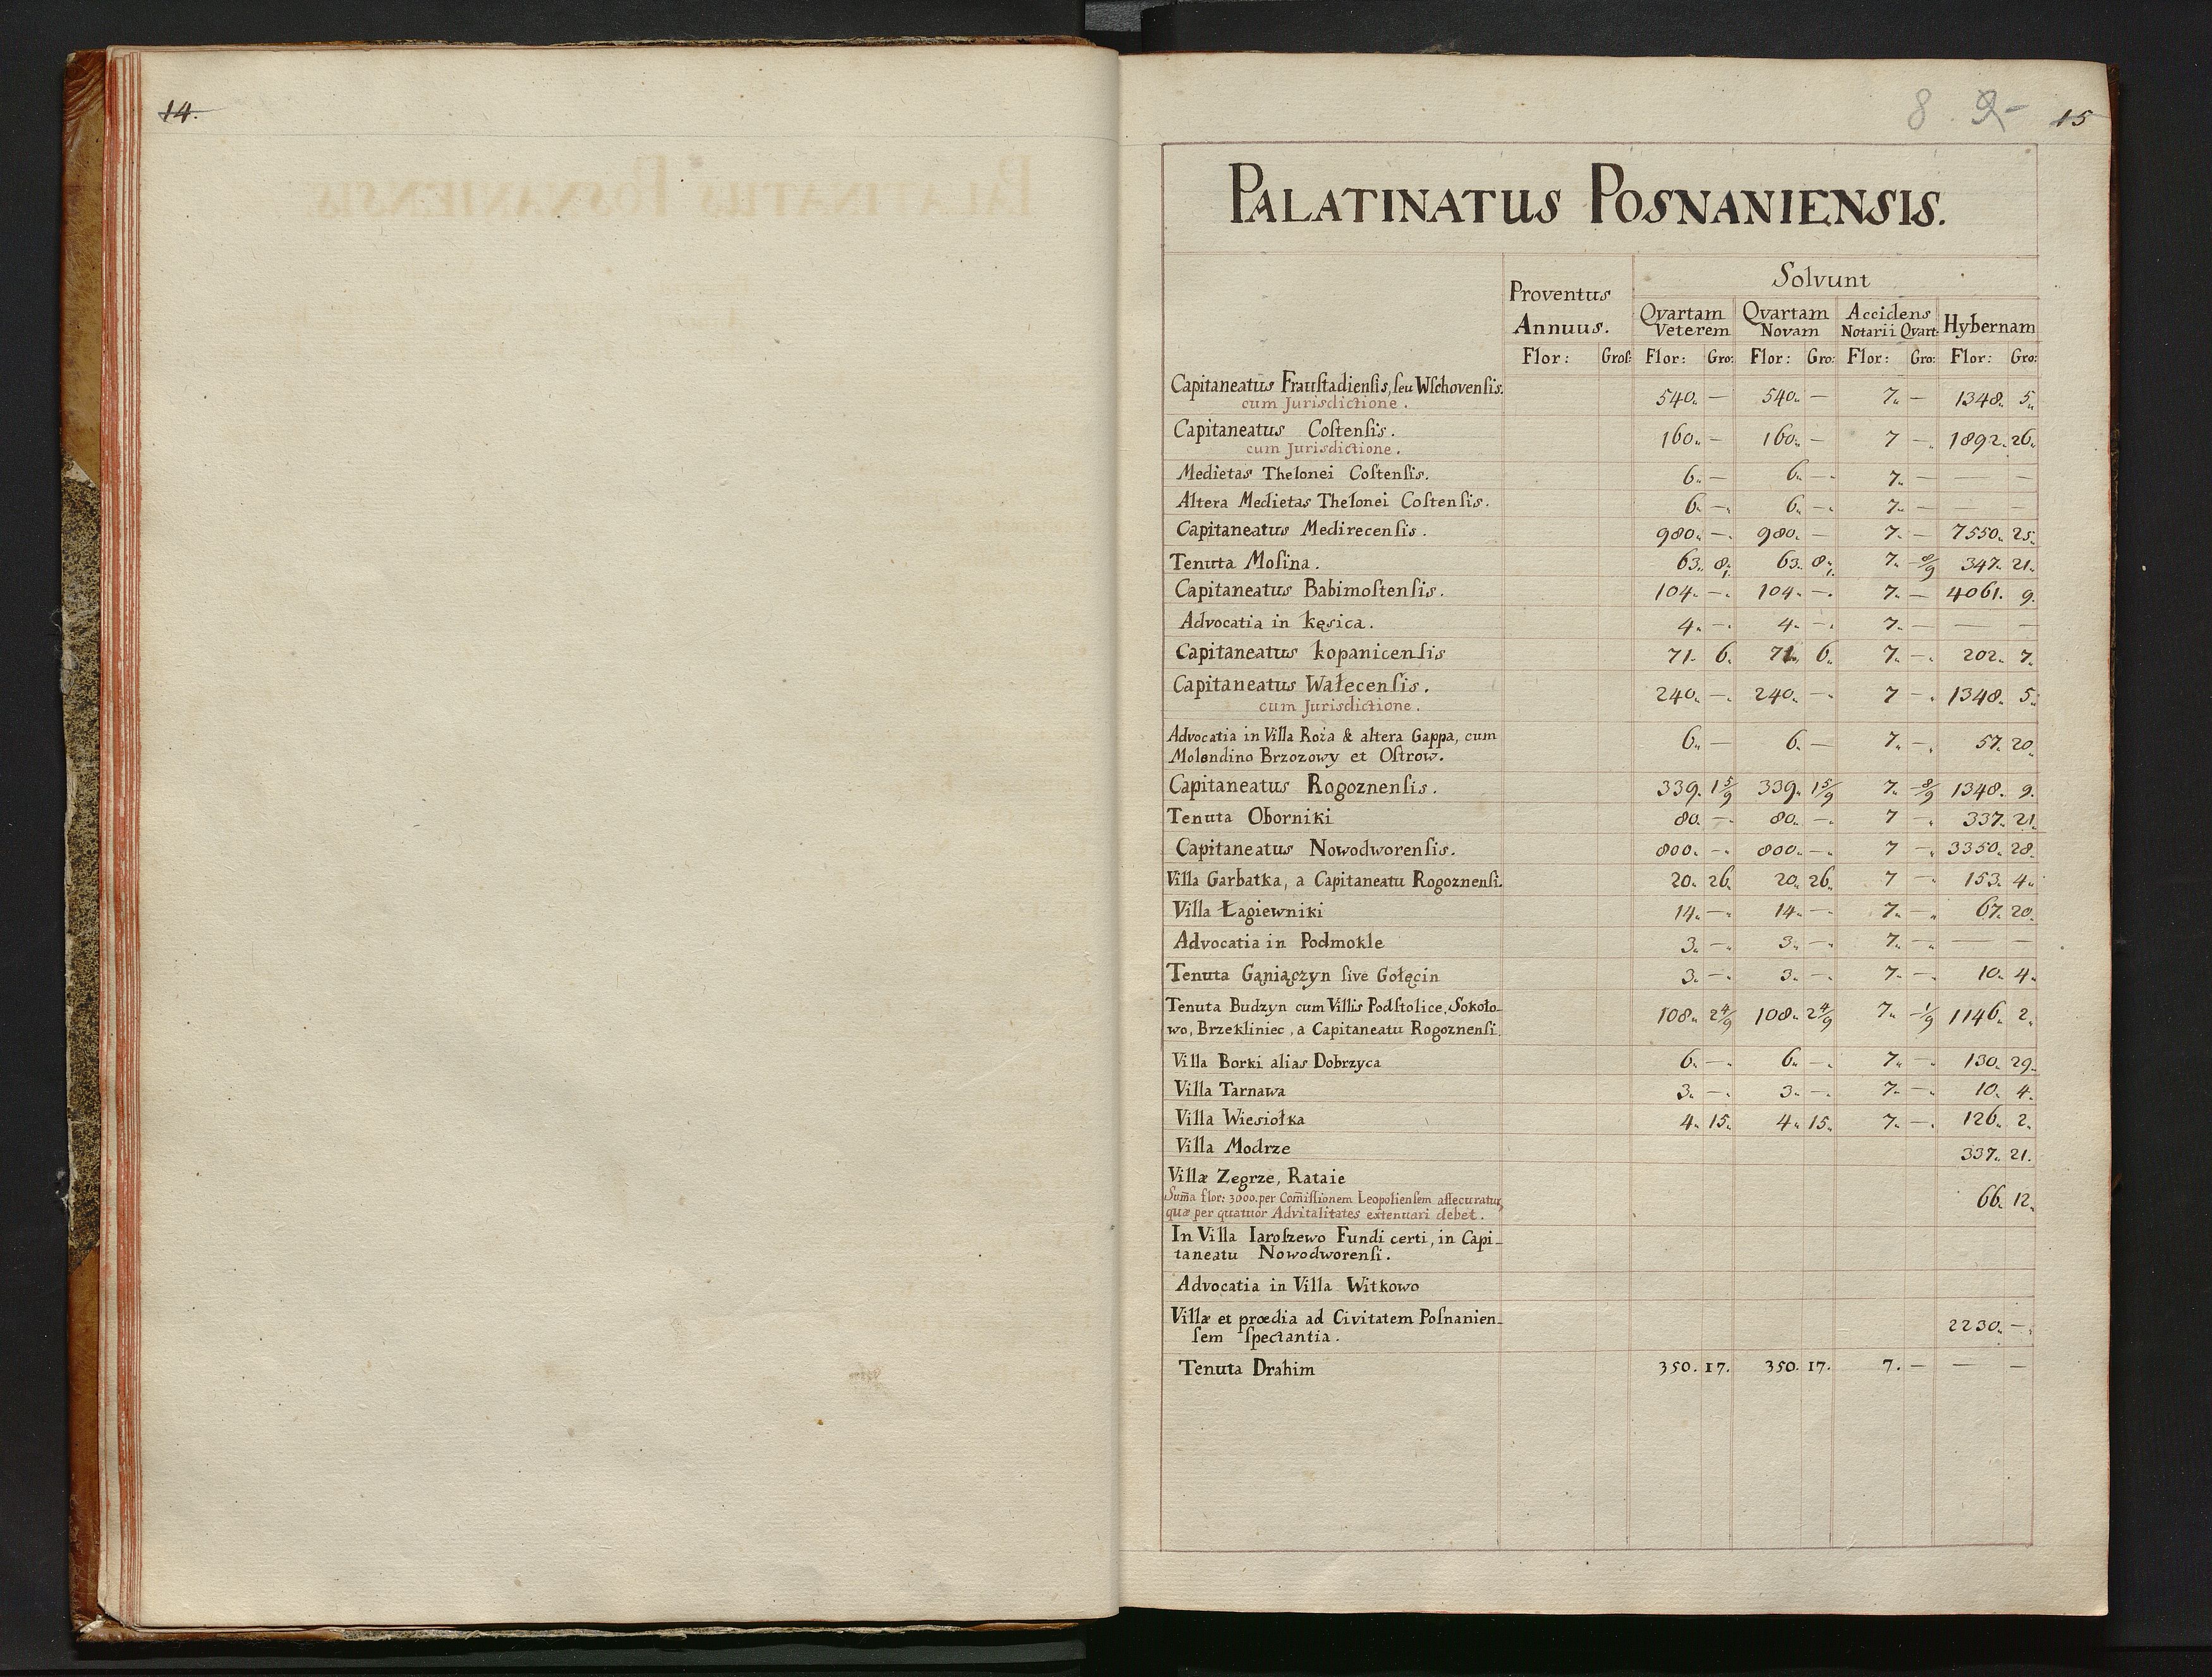 14.
8. 9 15
PALATINATUS POSNANIENSIS.
Proventus Annuus. Solvunt
Qvartam Veterem Qvartam Novam Accidens Notarii Qvart: Hybernam
Flor: Gros: Flor: Gro: Flor: Gro: Flor: Gro: Flor: Gro:
Capitaneatus Frauſtadienſis, ſeu Wſchovenſis. 540. — 540. — 7. — 1348. 5.
cum Jurisdictione.
Capitaneatus Coſtenſis. 160. — 160. — 7 —. 1892. 26.
cum Jurisdictione.
Medietas Thelonei Coſtenſis. 6. — 6. —. 7. — — —
Altera Medietas Thelonei Coſtenſis. 6. —. 6. —. 7. — — —
Capitaneatus Medirecenſis. 980. —. 980. — 7. — 7550. 25.
Tenuta Moſina. 63. 8. 63. 8. 7. —8/9 347. 21.
Capitaneatus Babimoſtenſis. 104. —. 104. —. 7. — 4061. 9.
Advocatia in kęsica. 4. —. 4. —. 7. — — —
Capitaneatus kopanicenſis 71. 6. 71. 6. 7. —. 202. 7.
Capitaneatus Wałecenſis. 240. —. 240. —. 7 —. 1348. 5.
cum Jurisdictione.
Advocatia in Villa Roża & altera Gappa, cum
Molendino Brzozowy et Oſtrow. 6. — 6. — 7. —. 57. 20.
Capitaneatus Rogoznenſis. 339. 1 5/9 339. 1 5/9 7. —8/9 1348. 9.
Tenuta Oborniki 80. —. 80. —. 7 —. 337. 21.
Capitaneatus Nowodworenſis. 800. —. 800. —. 7 —. 3350. 28.
Villa Garbatka, a Capitaneatu Rogoznenſi. 20. 26. 20. 26. 7 —. 153. 4.
Villa Łagiewniki 14. —. 14. —. 7. —. 67. 20.
Advocatia in Podmokle 3. —. 3. —. 7. —. — —
Tenuta Gąniączyn ſive Gołęcin 3. —. 3. —. 7. —. 10. 4.
Tenuta Budzyn cum Villis Podſtolice, Sokoło-
wo, Brzekliniec, a Capitaneatu Rogoznenſi. 108. 2 4/9 108. 2 4/9 7. —1/9 1146. 2.
Villa Borki alias Dobrzyca 6. —. 6. —. 7. —. 130. 29.
Villa Tarnawa 3. —. 3. —. 7. —. 10. 4.
Villa Wiesiołka 4. 15. 4. 15. 7. —. 126. 2.
Villa Modrze 337. 21.
Villæ Zegrze, Rataie 66. 12.
Sum̃a flor: 3000. per Com̃iſſionem Leopolienſem aſſecuratur,
quæ per quatuor Advitalitates extenuari debet.
In Villa Iaroſzewo Fundi certi, in Capi-
taneatu Nowodworenſi.
Advocatia in Villa Witkowo
Villæ et prœdia ad Civitatem Poſnanien-
ſem ſpectantia. 2230. —.
Tenuta Drahim 350. 17. 350. 17. 7. — — —